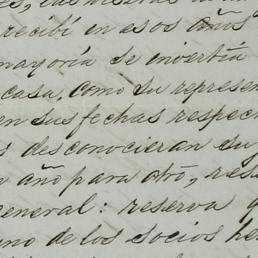 recibí en esos años
mayoría se invertía
casa, como su represen
en sus fechas respec
desconocieran su
año para otro, res
general: reserva
uno de los socios he